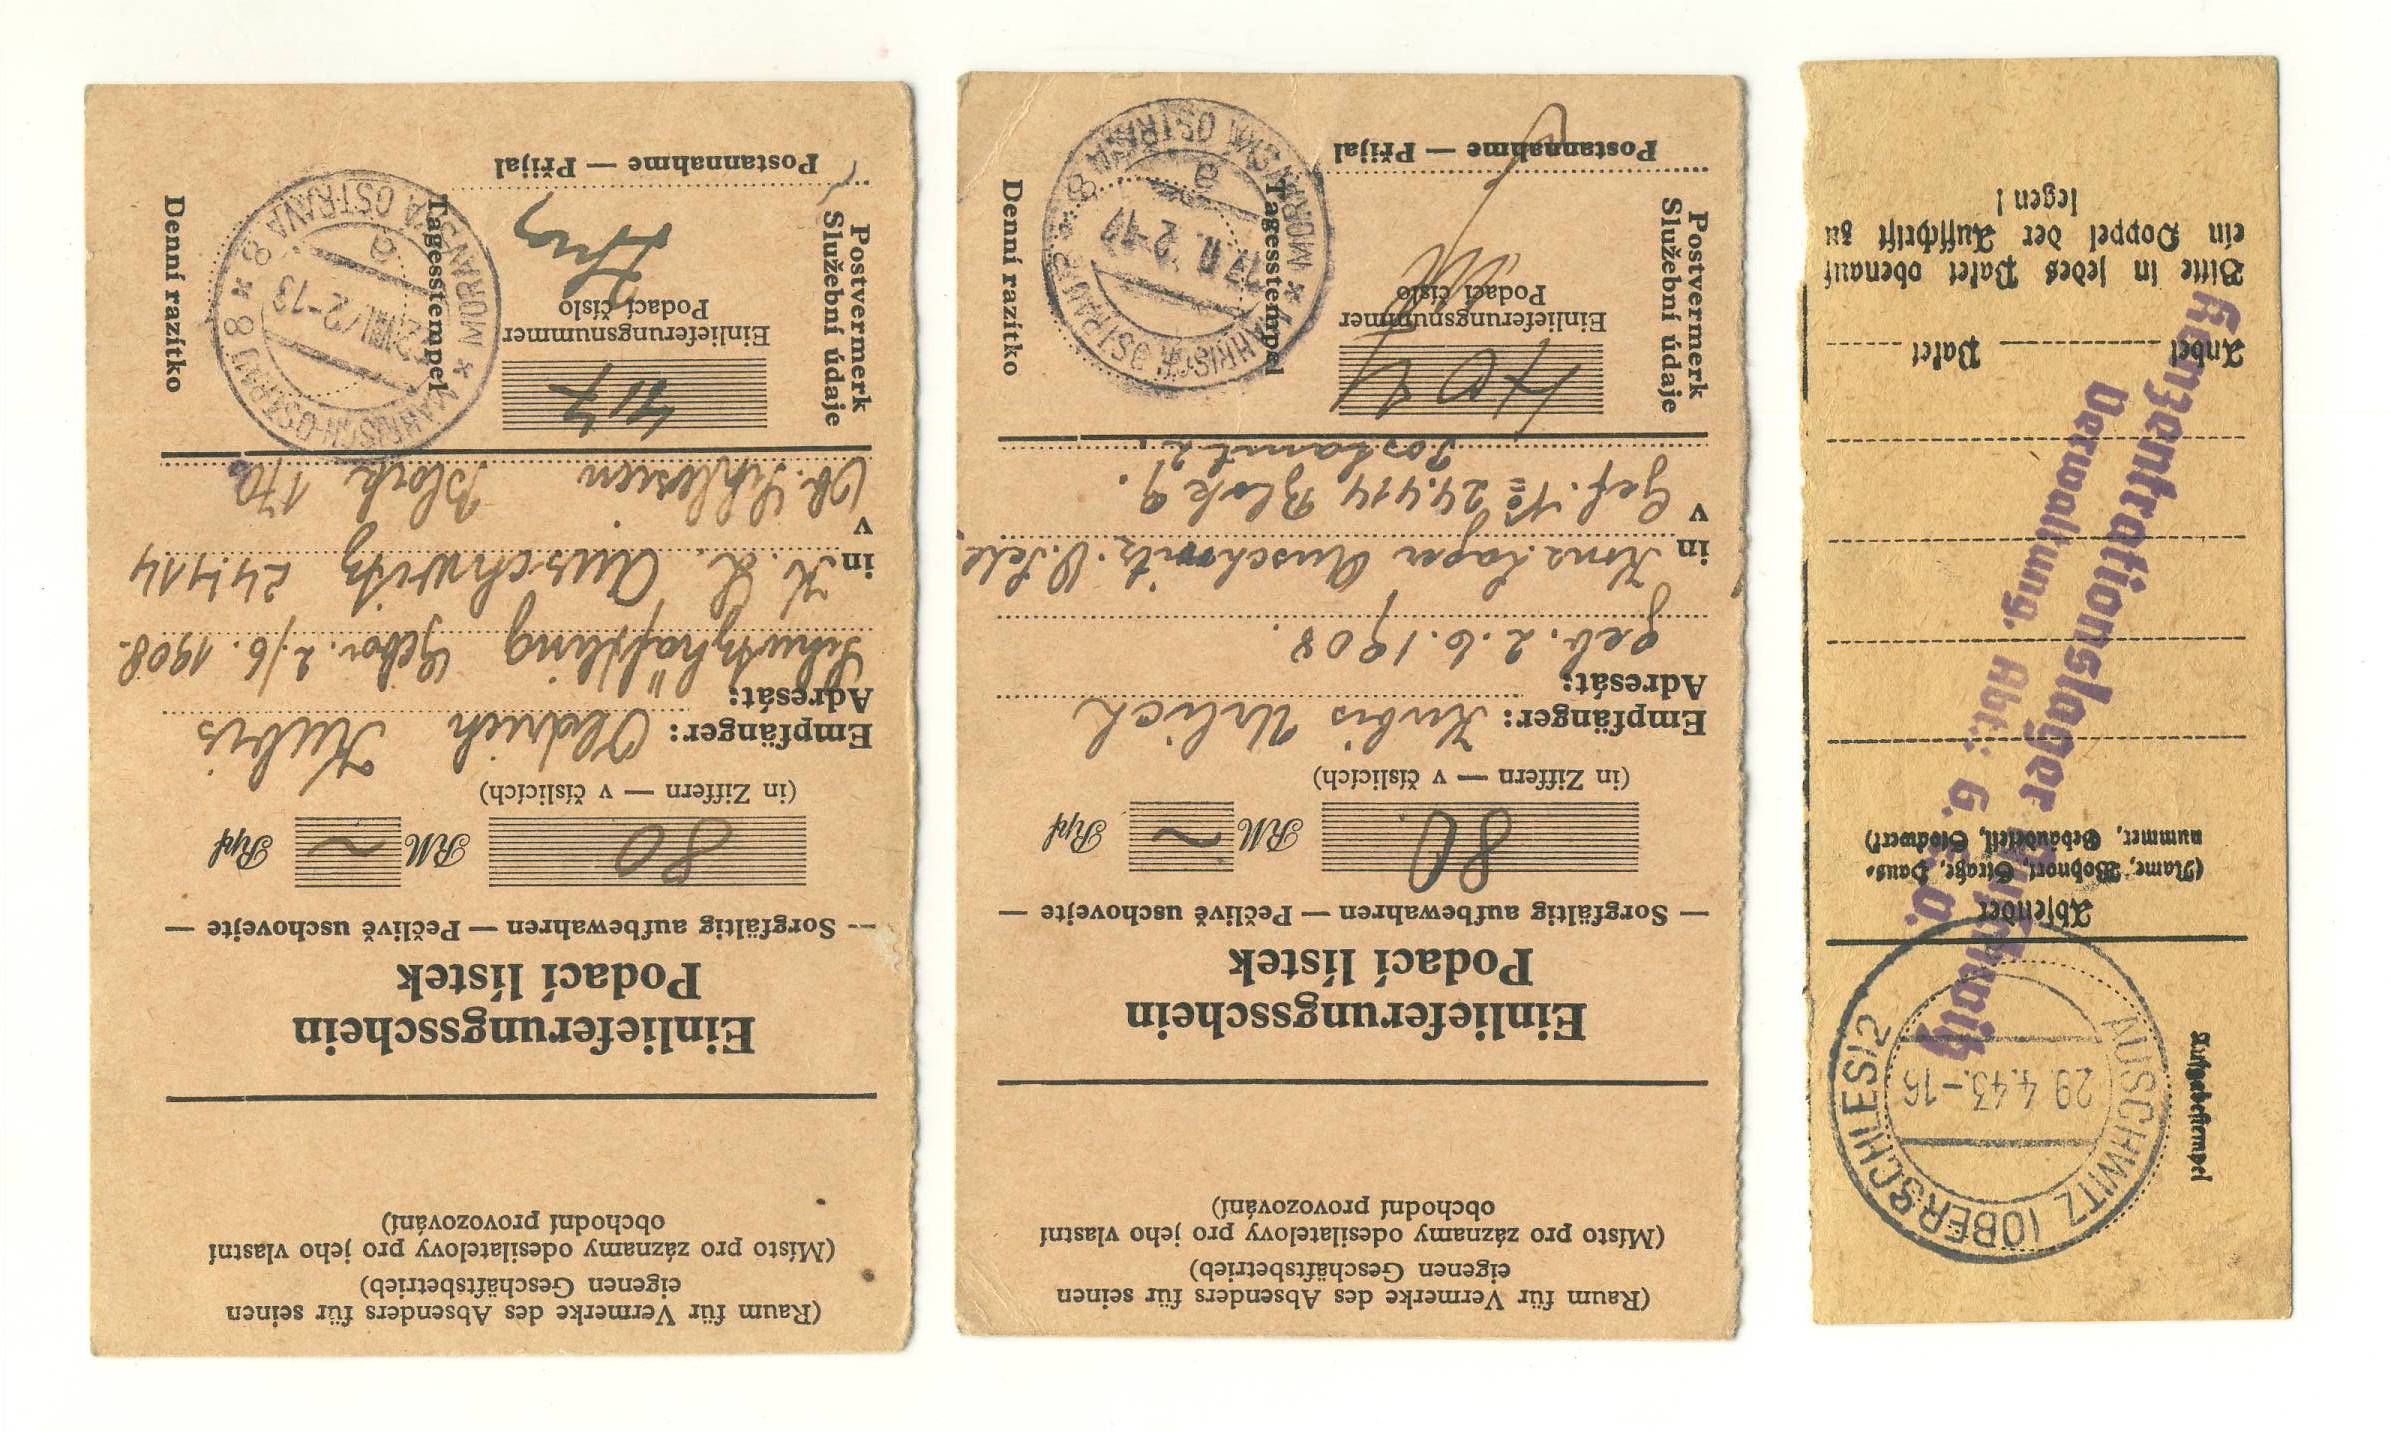 (Raum für Vermerke des Absenders für seinen
eigenen Geschäftsbetrieb)
(Místo pro záznamy odesilatelovy pro jeho vlastní
obchodní provozování)
Einlieferungsschein
Podací lístek
— Sorgfältig aufbewahren — Pečlivě uschovejte —
80 RM ~ Rpf
(in Ziffern — v číslicích)
Empfänger: Oldrich Kubis
Adresát:
Schutzhäftling Gebor. 2./6. 1908.
in K. L. Auschwitz 24414
v
Ob. Schlesien Block 17a
Postvermerk
Služební údaje
417
Einlieferungsnummer
Podací číslo
Postannahme — Přijal
Tagesstempel
Denní razítko
* MÄHRISCH-OSTRAU 8 * MORAVSKÁ OSTRAVA 8
(Raum für Vermerke des Absenders für seinen
eigenen Geschäftsbetrieb)
(Místo pro záznamy odesilatelovy pro jeho vlastní
obchodní provozování)
Einlieferungsschein
Podací lístek
— Sorgfältig aufbewahren — Pečlivě uschovejte —
80 RM ~ Rpf
(in Ziffern — v číslicích)
Empfänger: Kubis Urlich
Adresát:
geb. 2.6.1908.
in Konz. Lager Auschwitz. O. Schl.
v
Gef. No 24.414 Blok 9.
Postamt 2.
Postvermerk
Služební údaje
Einlieferungsnummer
Podací číslo
Postannahme — Přijal
Tagesstempel
Denní razítko
* MÄHRISCH OSTRAU 8 * MORAVSKÁ OSTRAVA 8
Aufgabestempel
AUSCHWITZ (OBERSCHLES) 2
29.4.43.-16
Absender
(Name, Wohnort, Straße, Haus-
nummer, Gebäudeteil, Stockwerk)
Konzentrationslager Auschwitz
Verwaltung, Abt.: G. E. V.
Anbei Paket
Bitte in jedes Paket obenauf
ein Doppel der Aufschrift zu
legen!